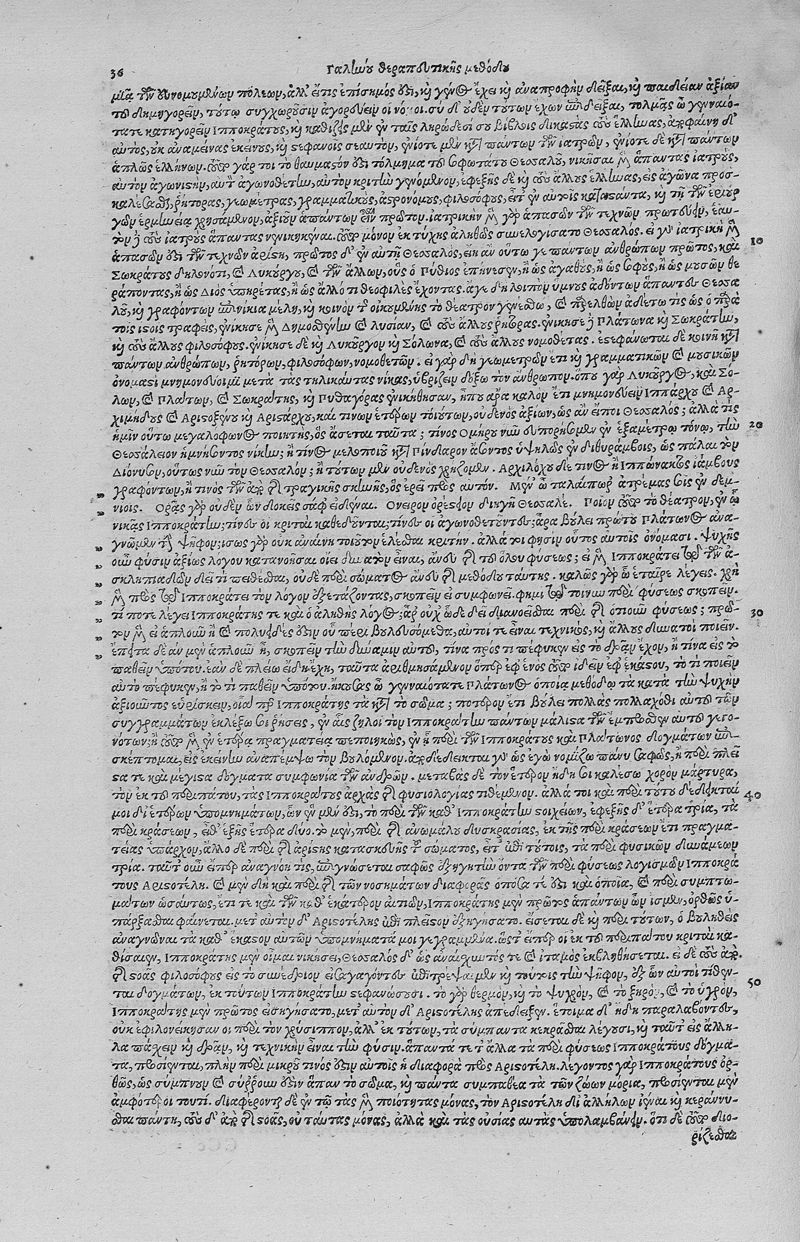 36 Γαληνοῦ θεραπευτικῆς μεθόδου
μίᾳ τῶν εὐνομουμένων πόλεων, ἀλλ' εἴ τις ἐπίσημός ἐστι, καὶ γένος ἔχει καὶ ἀνατροφὴν δεῖξαι, καὶ παιδείαν ἀξίαν
τοῦ δημηγορεῖν, τούτῳ συγχωροῦσιν ἀγορεύειν οἱ νόμοι. σὺ δ' οὐδὲν τούτων ἔχων ἐπιδεῖξαι, τολμᾷς ὦ γενναιό-
τατε κατηγορεῖν Ἱπποκράτους, καὶ καθίζεις μὲν ἐν ταῖς ληρώδεσί σου βίβλοις δικαστὰς τοὺς ἕλληνας, ἀποφαίνῃ δ'
αὐτὸς, οὐκ ἀναμείνας ἐκείνους, καὶ στεφανοῖς σεαυτὸν, ἐνίοτε μὲν κατὰ πάντων τῶν ἰατρῶν, ἐνίοτε δὲ κατὰ πάντων
ἁπλῶς ἑλλήνων. τοῦτο γάρ τοι τὸ θαυμαστόν ἐστι τόλμημα τοῦ σοφωτάτου Θεσσαλοῦ, νικῆσαι μὲν ἅπαντας ἰατροὺς,
αὐτὸν ἀγωνιστὴν, αὐτὸν ἀγωνοθέτην, αὐτὸν κριτὴν γενόμενον, ἐφεξῆς δὲ καὶ τοὺς ἄλλους ἕλληνας, εἰς ἀγῶνα προσ-
καλεῖσθαι, ῥήτορας, γεωμέτρας, γραμματικοὺς, ἀστρονόμους, φιλοσόφους, εἶτ' ἐν αὐτοῖς καταστάντα, καὶ τῇ τῶν ἐριουρ-
γῶν ἑρμηνείᾳ χρησάμενον, ἀξιοῦν ἁπάντων εἶναι πρῶτον. ἰατρικὴν μὲν γὰρ ἁπασῶν τῶν τεχνῶν πρωτεύειν, ἑαυ-
τὸν δὲ τοὺς ἰατροὺς ἅπαντας νενικηκέναι. τοῦτο μόνον ἐκ τύχης ἀληθῶς συνελογίσατο Θεσσαλός. εἰ γὰρ ἰατρικὴ μὲν
ἁπασῶν ἐστι τῶν τεχνῶν ἀρίστη, πρῶτος δ' ἐν αὐτῇ Θεσσαλὸς, εἴη ἂν οὕτω γε πάντων ἀνθρώπων πρῶτος, καὶ 10
Σωκράτους δηλονότι, καὶ Λυκούργου, καὶ τῶν ἄλλων, οὓς ὁ Πύθιος ἐπῄνεσεν, ἢ ὡς ἀγαθοὺς, ἢ ὡς σοφοὺς, ἢ ὡς μουσῶν θε
ράποντας, ἢ ὡς Διὸς ὑπηρέτας, ἢ ὡς ἄλλό τι θεοφιλὲς ἔχοντας. ἄγε δὴ λοιπὸν ὕμνους ᾀδόντων ἅπαντες Θεσσα
λοῦ, καὶ γραφόντων ἐπινίκια μέλη, καὶ κοινὸν τῆς οἰκουμένης τὸ θέατρον γενέσθω, καὶ παρελθὼν ᾀδέτω τις ὡς ὁ παρὰ
τοῖς ἱστοῖς τραφεὶς, ἐνίκησε μὲν Δημοσθένην καὶ Λυσίαν, καὶ τοὺς ἄλλους ῥήτορας. ἐνίκησε δὲ Πλάτωνα καὶ Σωκράτην,
καὶ τοὺς ἄλλους φιλοσόφους. ἐνίκησε δὲ καὶ Λυκοῦργον καὶ Σόλωνα, καὶ τοὺς ἄλλους νομοθέτας. ἐστεφάνωται δὲ κοινῇ κατὰ
πάντων ἀνθρώπων, ῥητόρων, φιλοσόφων, νομοθετῶν. εἰ γὰρ δὴ γεωμετρῶν ἔτι καὶ γραμματικῶν καὶ μουσικῶν
ὀνομαστὶ μνημονεύοιμι μετὰ τὰς τηλικαύτας νίκας, ὑβρίζειν δόξω τὸν ἄνθρωπον. ὅπου γὰρ Λυκοῦργος, καὶ Σό-
λων, καὶ Πλάτων, καὶ Σωκράτης, καὶ Πυθαγόρας ἐνικήθησαν, ἦπου ἄρα καλὸν ἔτι μνημονεύειν Ἱππάρχου καὶ Ἀρ-
χιμήδους καὶ Ἀριστοξένου καὶ Ἀριστάρχου, καί τινων ἑτέρων τοιούτων, οὐδενὸς ἀξίων, ὡς ἂν εἴποι Θεσσαλός; ἀλλὰ τίς
ἡμῖν οὕτω μεγαλόφωνος ποιητὴς, ὃς ᾄσεται ταῦτα; τίνος Ὁμήρου νῦν εὐπορήσομεν ἐν ἑξαμέτρῳ τόνῳ, τὴν 20
Θεσσάλειον ὑμνήσοντος νίκην; ἢ τίνος μελοποιοῦ κατὰ Πίνδαρον ᾄσοντος ὑψηλῶς ἐν διθυράμβοις, ὡς πάλαι τὸν
Διόνυσον, οὕτως νῦν τὸν Θεσσαλόν; ἢ τούτων μὲν οὐδενὸς χρῄζομεν. Ἀρχιλόχου δέ τινος ἢ Ἱππώνακτος ἰάμβους
γραφόντων, ἤ τινος τῶν ἀπὸ τῆς τραγικῆς σκηνῆς, ὃς ἐρεῖ πρὸς αὐτόν. Μέν' ὦ ταλαίπωρ' ἀτρέμας σοῖς ἐν δεμ-
νίοις. Ὁρᾷς γὰρ οὐδὲν ὧν δοκεῖς σάφ' εἰδέναι. Ὀνειρον ὀρέξεων διηγῇ Θεσσαλέ. Ποῖον τοῦτο τὸ θέατρον, ἐν ᾧ
νικᾷς Ἱπποκράτην; τίνες οἱ κριταὶ καθεδοῦνται; τίνες οἱ ἀγωνοθετοῦντες; ἆρα βούλει πρώτου Πλάτωνος ἀνα-
γνῶμεν τὴν ψῆφον; ἴσως γὰρ οὐκ ἀναίνῃ τοιοῦτον ἑλέσθαι κριτήν. ἀλλά τοι φησὶν οὗτος αὐτοῖς ὀνόμασι. Ψυχῆς
οὖν φύσιν ἀξίως λόγου κατανοῆσαι οἴει δυνατὸν εἶναι, ἄνευ τῆς τοῦ ὅλου φύσεως; εἰ μὲν Ἱπποκράτει τε τῷ τῶν ἀ-
σκληπιαδῶν δεῖ τι πείθεσθαι, οὐδὲ περὶ σώματος ἄνευ τῆς μεθόδου ταύτης. καλῶς γὰρ ὦ ἑταῖρε λέγεις. χρὴ
μέντοι πρὸς τῷ Ἱπποκράτει τὸν λόγον ἐξετάζοντας, σκοπεῖν εἰ συμφωνεῖ. φημί. τὸ τοίνυν περὶ φύσεως σκόπει,
τί ποτε λέγει Ἱπποκράτης τε καὶ ὁ ἀληθὴς λόγος; ἆρ' οὐχ ὧδε δεῖ διανοεῖσθαι περὶ τῆς ὁτιοῦν φύσεως; πρῶ- 30
τον μὲν εἰ ἁπλοῦν ἢ καὶ πολυειδές ἐστιν οὗ περὶ βουλευσόμεθα, αὐτοί τε εἶναι τεχνικοὶ, καὶ ἄλλους δυνατοὶ ποιεῖν.
ἔπειτα δὲ ἂν μὲν ἁπλοῦν ᾖ, σκοπεῖν τὴν δύναμιν αὐτοῦ, τίνα πρὸς τί πέφυκεν εἰς τὸ δρᾶν ἔχον, ἢ τίνα εἰς τὸ
παθεῖν ὑπό του. ἐὰν δὲ πλείω εἴδη ἔχῃ, ταῦτα ἀριθμησάμενον ὅπερ ἐφ' ἑνὸς τοῦτο ἰδεῖν ἐφ' ἑκάστου, τὸ τί ποιεῖν
αὐτὸ πέφυκεν, ἢ τὸ τί παθεῖν ὑπό του. ἤκουσας ὦ γενναιότατε Πλάτωνος ὁποίᾳ μεθόδῳ τὰ κατὰ τὴν ψυχὴν
ἀξιοῦντος εὑρίσκειν, οἵᾳ περ Ἱπποκράτης τὰ κατὰ τὸ σῶμα; πότερον ἔτι βούλει πολλὰς πολλαχόθι αὐτοῦ τῶν
συγγραμμάτων ἐκλέξω σοι ῥήσεις, ἐν αἷς ζηλοῖ τὸν Ἱπποκράτην πάντων μάλιστα τῶν ἔμπροσθεν αὐτοῦ γεγο-
νότων; ἢ τοῦτο μὲν ἐν ἑτέρᾳ πραγματείᾳ πεποιηκὼς, ἐν ᾗ περὶ τῶν Ἱπποκράτους καὶ Πλάτωνος δογμάτων ἐπι-
σκέπτομαι, εἰς ἐκείνην ἀναπέμψω τὸν βουλόμενον. ἀποδέδεικται γὰρ ὡς ἐγὼ νομίζω πάνυ σαφῶς, ἡ περὶ πλεῖ
στά τε καὶ μέγιστα δόγματα συμφωνία τῶν ἀνδρῶν. μεταβὰς δὲ τὸν ἕτερον ἤδη σοι καλέσω χορὸν μάρτυρα,
τὸν ἐκ τοῦ περιπάτου, τὰς Ἱπποκράτους ἀρχὰς τῆς φυσιολογίας τιθέμενον. ἀλλά τοι καὶ περὶ τούτου δέδεικταί 40
μοι δι' ἑτέρων ὑπομνημάτων, ὧν ἓν μέν ἐστι, τὸ περὶ τῶν καθ' Ἱπποκράτην στοιχείων, ἐφεξῆς δ' ἕτερα τρία, τὰ
περὶ κράσεων, εἶθ' ἑξῆς ἕτερα δύο. τὸ μὲν, περὶ τῆς ἀνωμάλου δυσκρασίας, ἐκ τῆς περὶ κράσεων ἔτι πραγμα-
τείας ὑπάρχον, ἄλλο δὲ περὶ τῆς ἀρίστης κατασκευῆς τοῦ σώματος, εἶτ' ἐπὶ τούτοις, τὰ περὶ φυσικῶν δυνάμεων
τρία. ταῦτ' οὖν εἴπερ ἀναγνοίη τις, ἐπιγνώσεται σαφῶς ἐξηγητὴν ὄντα τῶν περὶ φύσεως λογισμῶν Ἱπποκρά
τους Ἀριστοτέλη. καὶ μὲν δὴ καὶ περὶ τῆς τῶν νοσημάτων διαφορᾶς ὁπόσα τέ ἐστι καὶ ὁποῖα, καὶ περὶ συμπτω-
μάτων ὡσαύτως, ἔτι τε καὶ τῶν καθ' ἑκάτερον αἰτιῶν, Ἱπποκράτης μὲν πρῶτος ἁπάντων ὧν ἴσμεν, ὀρθῶς ὑ-
πάρξασθαι φαίνεται. μετ' αὐτὸν δ' Ἀριστοτέλης ἐπὶ πλεῖστον ἐξηγήσατο. εἴσεται δὲ καὶ περὶ τούτων, ὁ βουληθεὶς
ἀναγνῶναι τὰ καθ' ἕκαστον αὐτῶν ὑπομνήματά μοι γεγραμμένα. ὥστ' εἴπερ οἱ ἐκ τοῦ περιπάτου κριταὶ κα-
θίσαιεν, Ἱπποκράτης μὲν οἶμαι νικήσει, Θεσσαλὸς δ' ὡς ἀναίσχυντός τε καὶ ἰταμὸς ἐκβληθήσεται. εἰ δὲ τοὺς ἀπὸ
τῆς στοᾶς φιλοσόφους εἰς τὸ συνέδριον εἰσαγαγόντες ἐπιτρέψαιμεν καὶ τούτοις τὴν ψῆφον, ἐξ ὧν αὐτοὶ τίθεν-
ται δογμάτων, ἐκ τούτων Ἱπποκράτην στεφανώσουσι. τὸ γὰρ θερμὸν, καὶ τὸ ψυχρὸν, καὶ τὸ ξηρὸν, καὶ τὸ ὑγρὸν, 50
Ἱπποκράτης μὲν πρῶτος εἰσηγήσατο, μετ' αὐτὸν δ' Ἀριστοτέλης ἀπέδειξεν. ἕτοιμα δ' ἤδη παραλαβόντες,
οὐκ ἐφιλονείκησαν οἱ περὶ τὸν χρύσιππον, ἀλλ' ἐκ τούτων, τὰ σύμπαντα κεκρᾶσθαι λέγουσι, καὶ ταῦτ' εἰς ἄλλη-
λα πάσχειν καὶ δρᾶν, καὶ τεχνικὴν εἶναι τὴν φύσιν. ἅπαντά τε τἄλλα τὰ περὶ φύσεως Ἱπποκράτους δόγμα-
τα, προσίενται, πλὴν περὶ μικροῦ τινος ἐστιν αὐτοῖς ἡ διαφορὰ πρὸς Ἀριστοτέλη. λέγοντος γὰρ Ἱπποκράτους ὀρ-
θῶς, ὡς σύμπνουν καὶ σύρρουν ἐστιν ἅπαν τὸ σῶμα, καὶ πάντα συμπαθέα τὰ τῶν ζώων μόρια, προσίενται μὲν
ἀμφότεροι τουτί. διαφέρονται δὲ ἐν τῷ τὰς μὲν ποιότητας μόνας, τὸν Ἀριστοτέλη δι' ἀλλήλων ἰέναι καὶ κεράννυ-
σθαι πάντη, τοὺς δ' ἀπὸ τῆς στοᾶς, οὐ ταύτας μόνας, ἀλλὰ καὶ τὰς οὐσίας αὐτὰς ὑπολαμβάνειν. ὅτι δὲ τοῦτο διο-
ρίζεσθαι